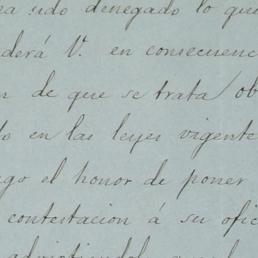 sido denegado lo que
derá V. en consecuenc
n de que se trata ob
o en las leyes vigente
go el honor de poner
contestacion á su ofic